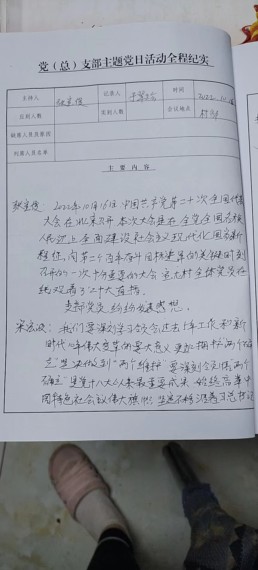 党（总）支部主题党日活动全程纪实
主持人 记录人 时间 2022.10.16
应到人数 实到人数 会议地点 村部
缺席人员及原因
列席人员名单
主要内容
2022年10月16日中国共产党第二十次全国代表
大会在北京召开 本次大会是在全党全国各族
人民迈上全面建设社会主义现代化国家新
征程，向第二个百年奋斗目标进军的关键时刻
召开的一次十分重要的大会 全体党员在
线观看了二十大直播。
支部党员纷纷发表感想。
我们要深刻学习领会过去5年工作和新
时代10年伟大变革的重大意义 更加拥护"两个确
立"坚决做到"两个维护" 要深刻领悟"两个
确立"是党十八大以来最重要成果 始终高举中
国特色社会主义伟大旗帜